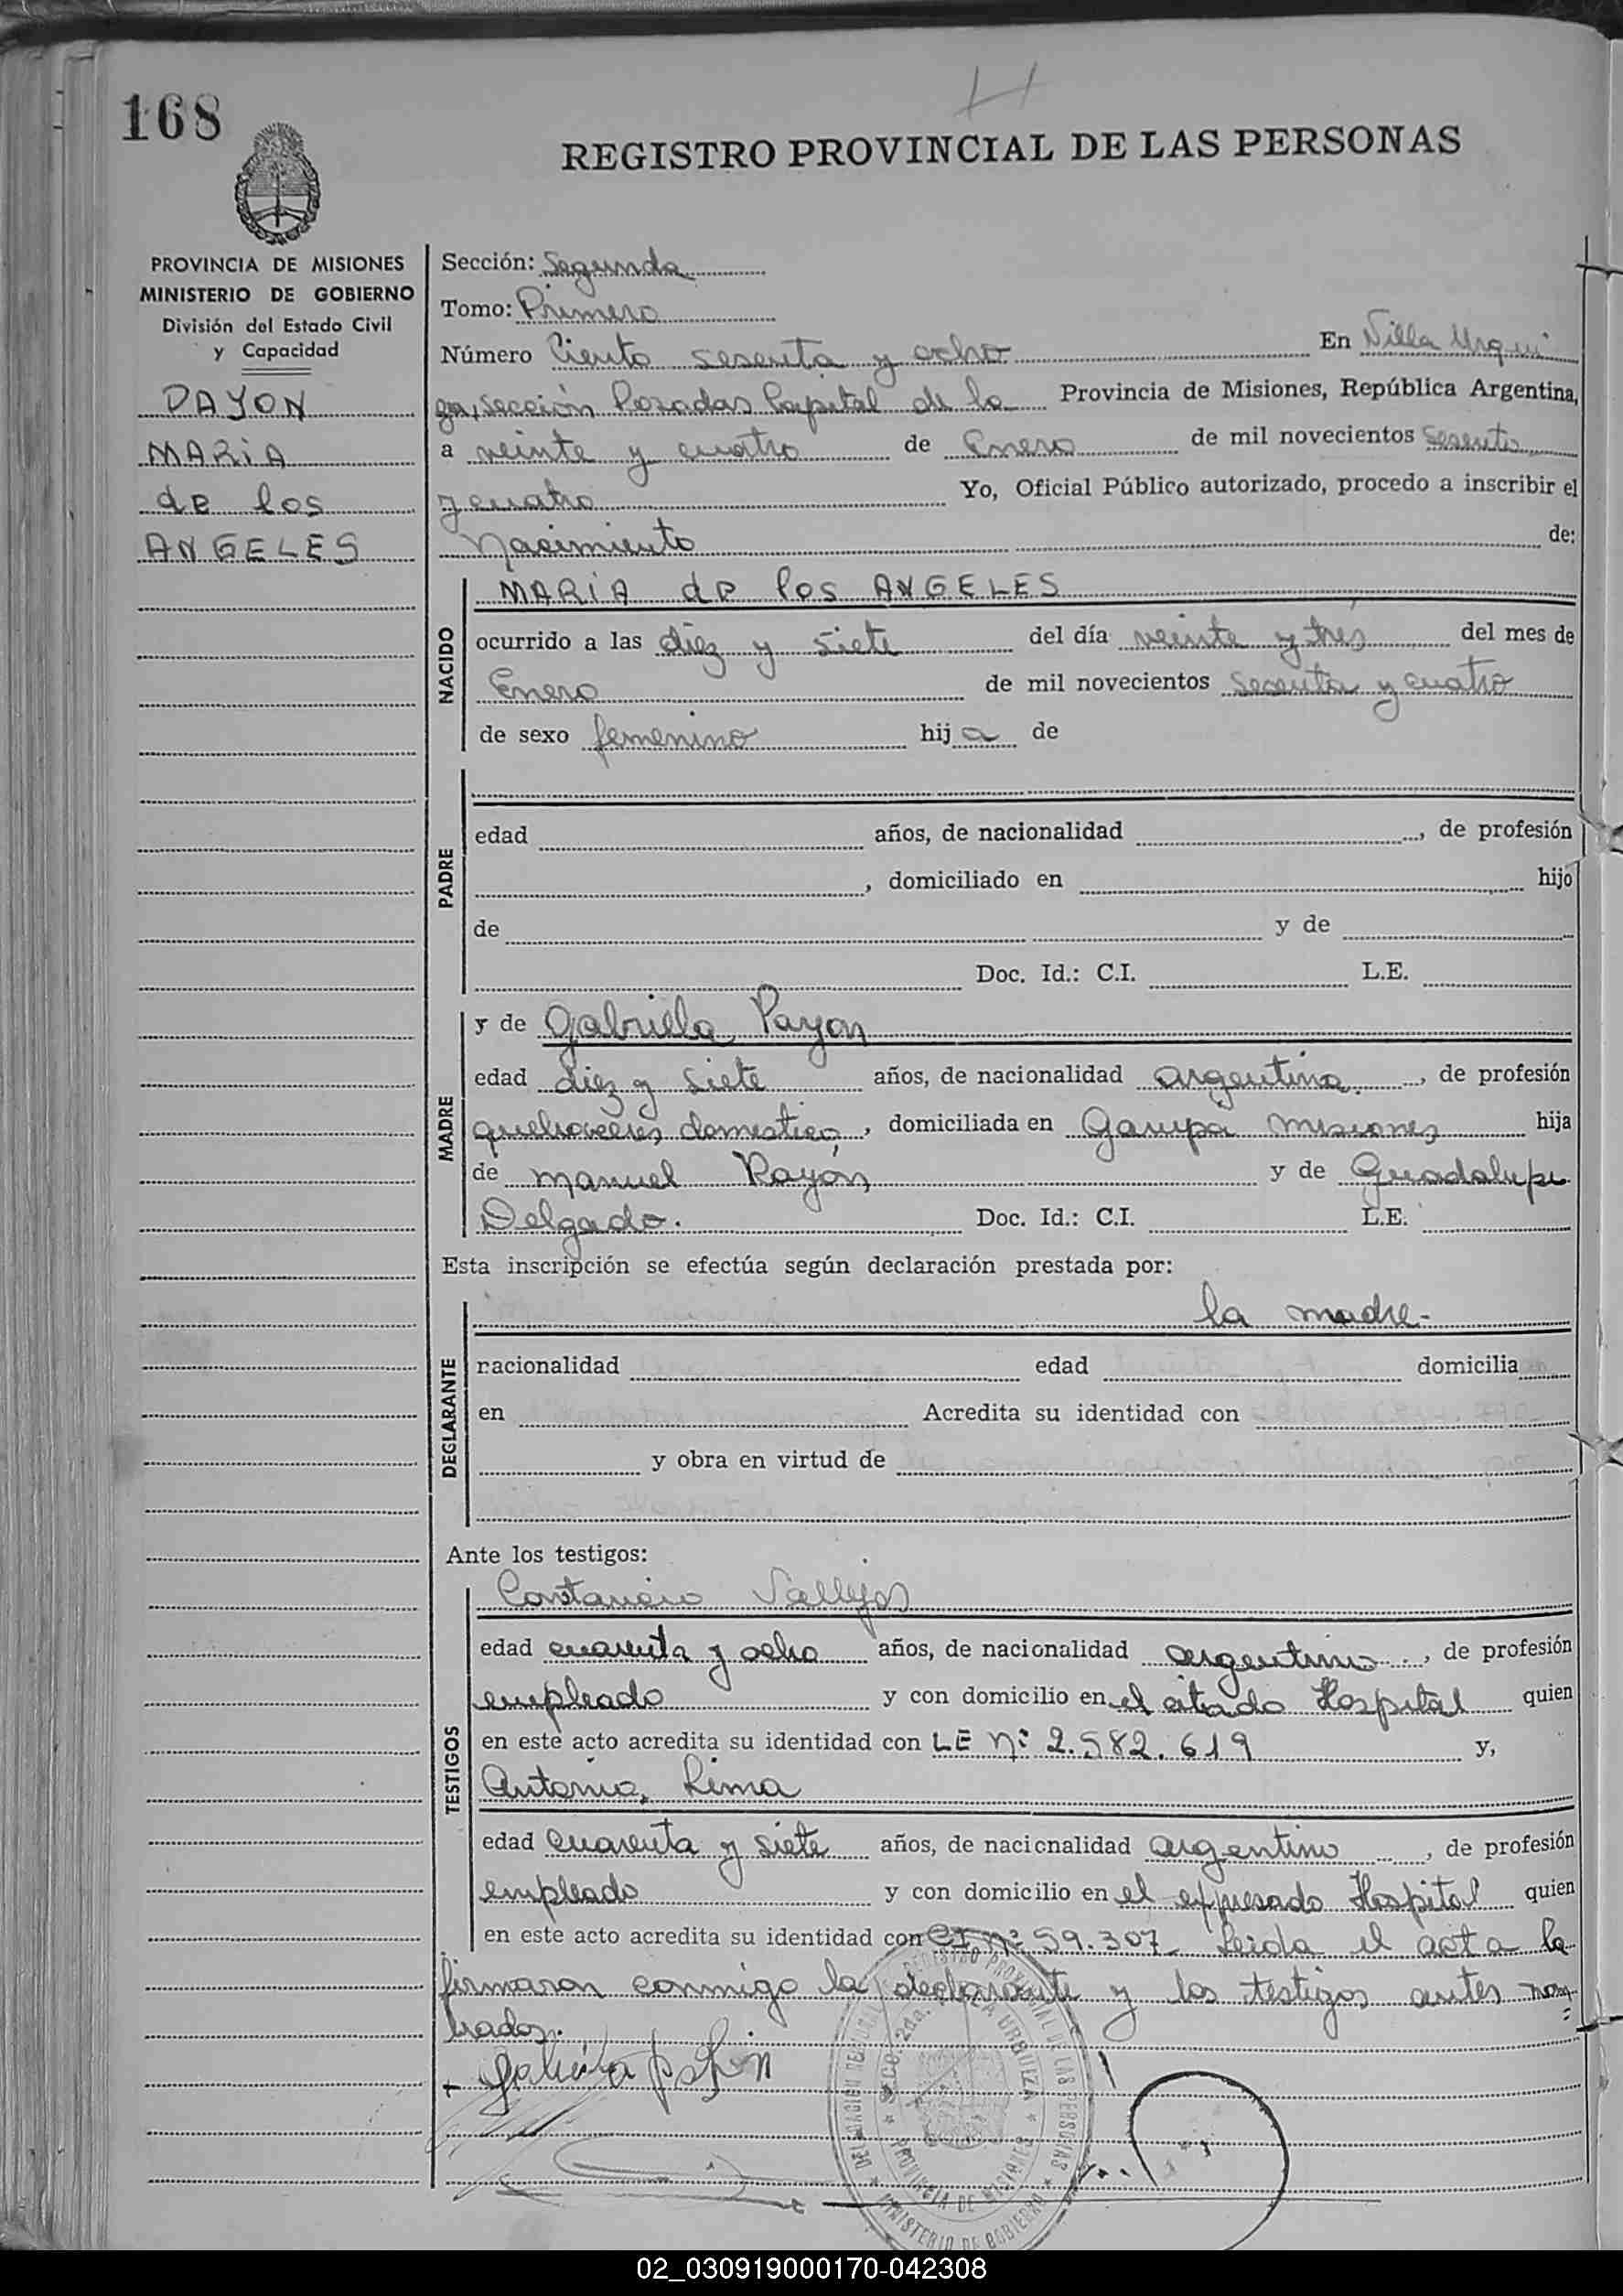 168
REGISTRO PROVINCIAL DE LAS PERSONAS
PROVINCIA DE MISIONES
MINISTERIO DE GOBIERNO
División del Estado Civil
y Capacidad
PAYON
MARIA
de los
ANGELES
Sección: Segunda
Tomo: Primero
Número Ciento sesenta y ocho En Villa Urqui
za, sección Posadas Capital de la Provincia de Misiones, República Argentina,
a veinte y cuatro de Enero de mil novecientos sesenta
y cuatro Yo, Oficial Público autorizado, procedo a inscribir el
Nacimiento de:
NACIDO
MARIA de los ANGELES
ocurrido a las diez y siete del día veinte y tres del mes de
Enero de mil novecientos sesenta y cuatro
de sexo femenino hija de
PADRE
edad años, de nacionalidad , de profesión
, domiciliado en hijo
de y de
Doc. Id.: C.I. L.E.
MADRE
y de Gabriela Payon
edad diez y siete años, de nacionalidad argentina, de profesión
quehaceres domestico, domiciliada en Garupá misiones hija
de manuel Payón y de Guadalupe
Delgado. Doc. Id.: C.I. L.E.
Esta inscripción se efectúa según declaración prestada por:
la madre.-
DEGLARANTE
racionalidad edad domicilia
en Acredita su identidad con
y obra en virtud de
Ante los testigos:
TESTIGOS
Constancio Vallejos
edad cuarenta y ocho años, de nacionalidad argentino, de profesión
empleado y con domicilio en el citado Hospital quien
en este acto acredita su identidad con LE nº 2.582.619 y,
Antonio Lima
edad cuarenta y siete años, de nacionalidad argentino, de profesión
empleado y con domicilio en el expresado Hospital quien
en este acto acredita su identidad con CI nº 59.307 Leida el acta la
firmaron conmigo la declarante y los testigos antes nom
brados.
DELEGACION REGIONAL REGISTRO PROVINCIAL DE LAS PERSONAS
SECC. 2da. VILLA URQUIZA
PROVINCIA DE MISIONES
MINISTERIO DE GOBIERNO
02_030919000170-042308